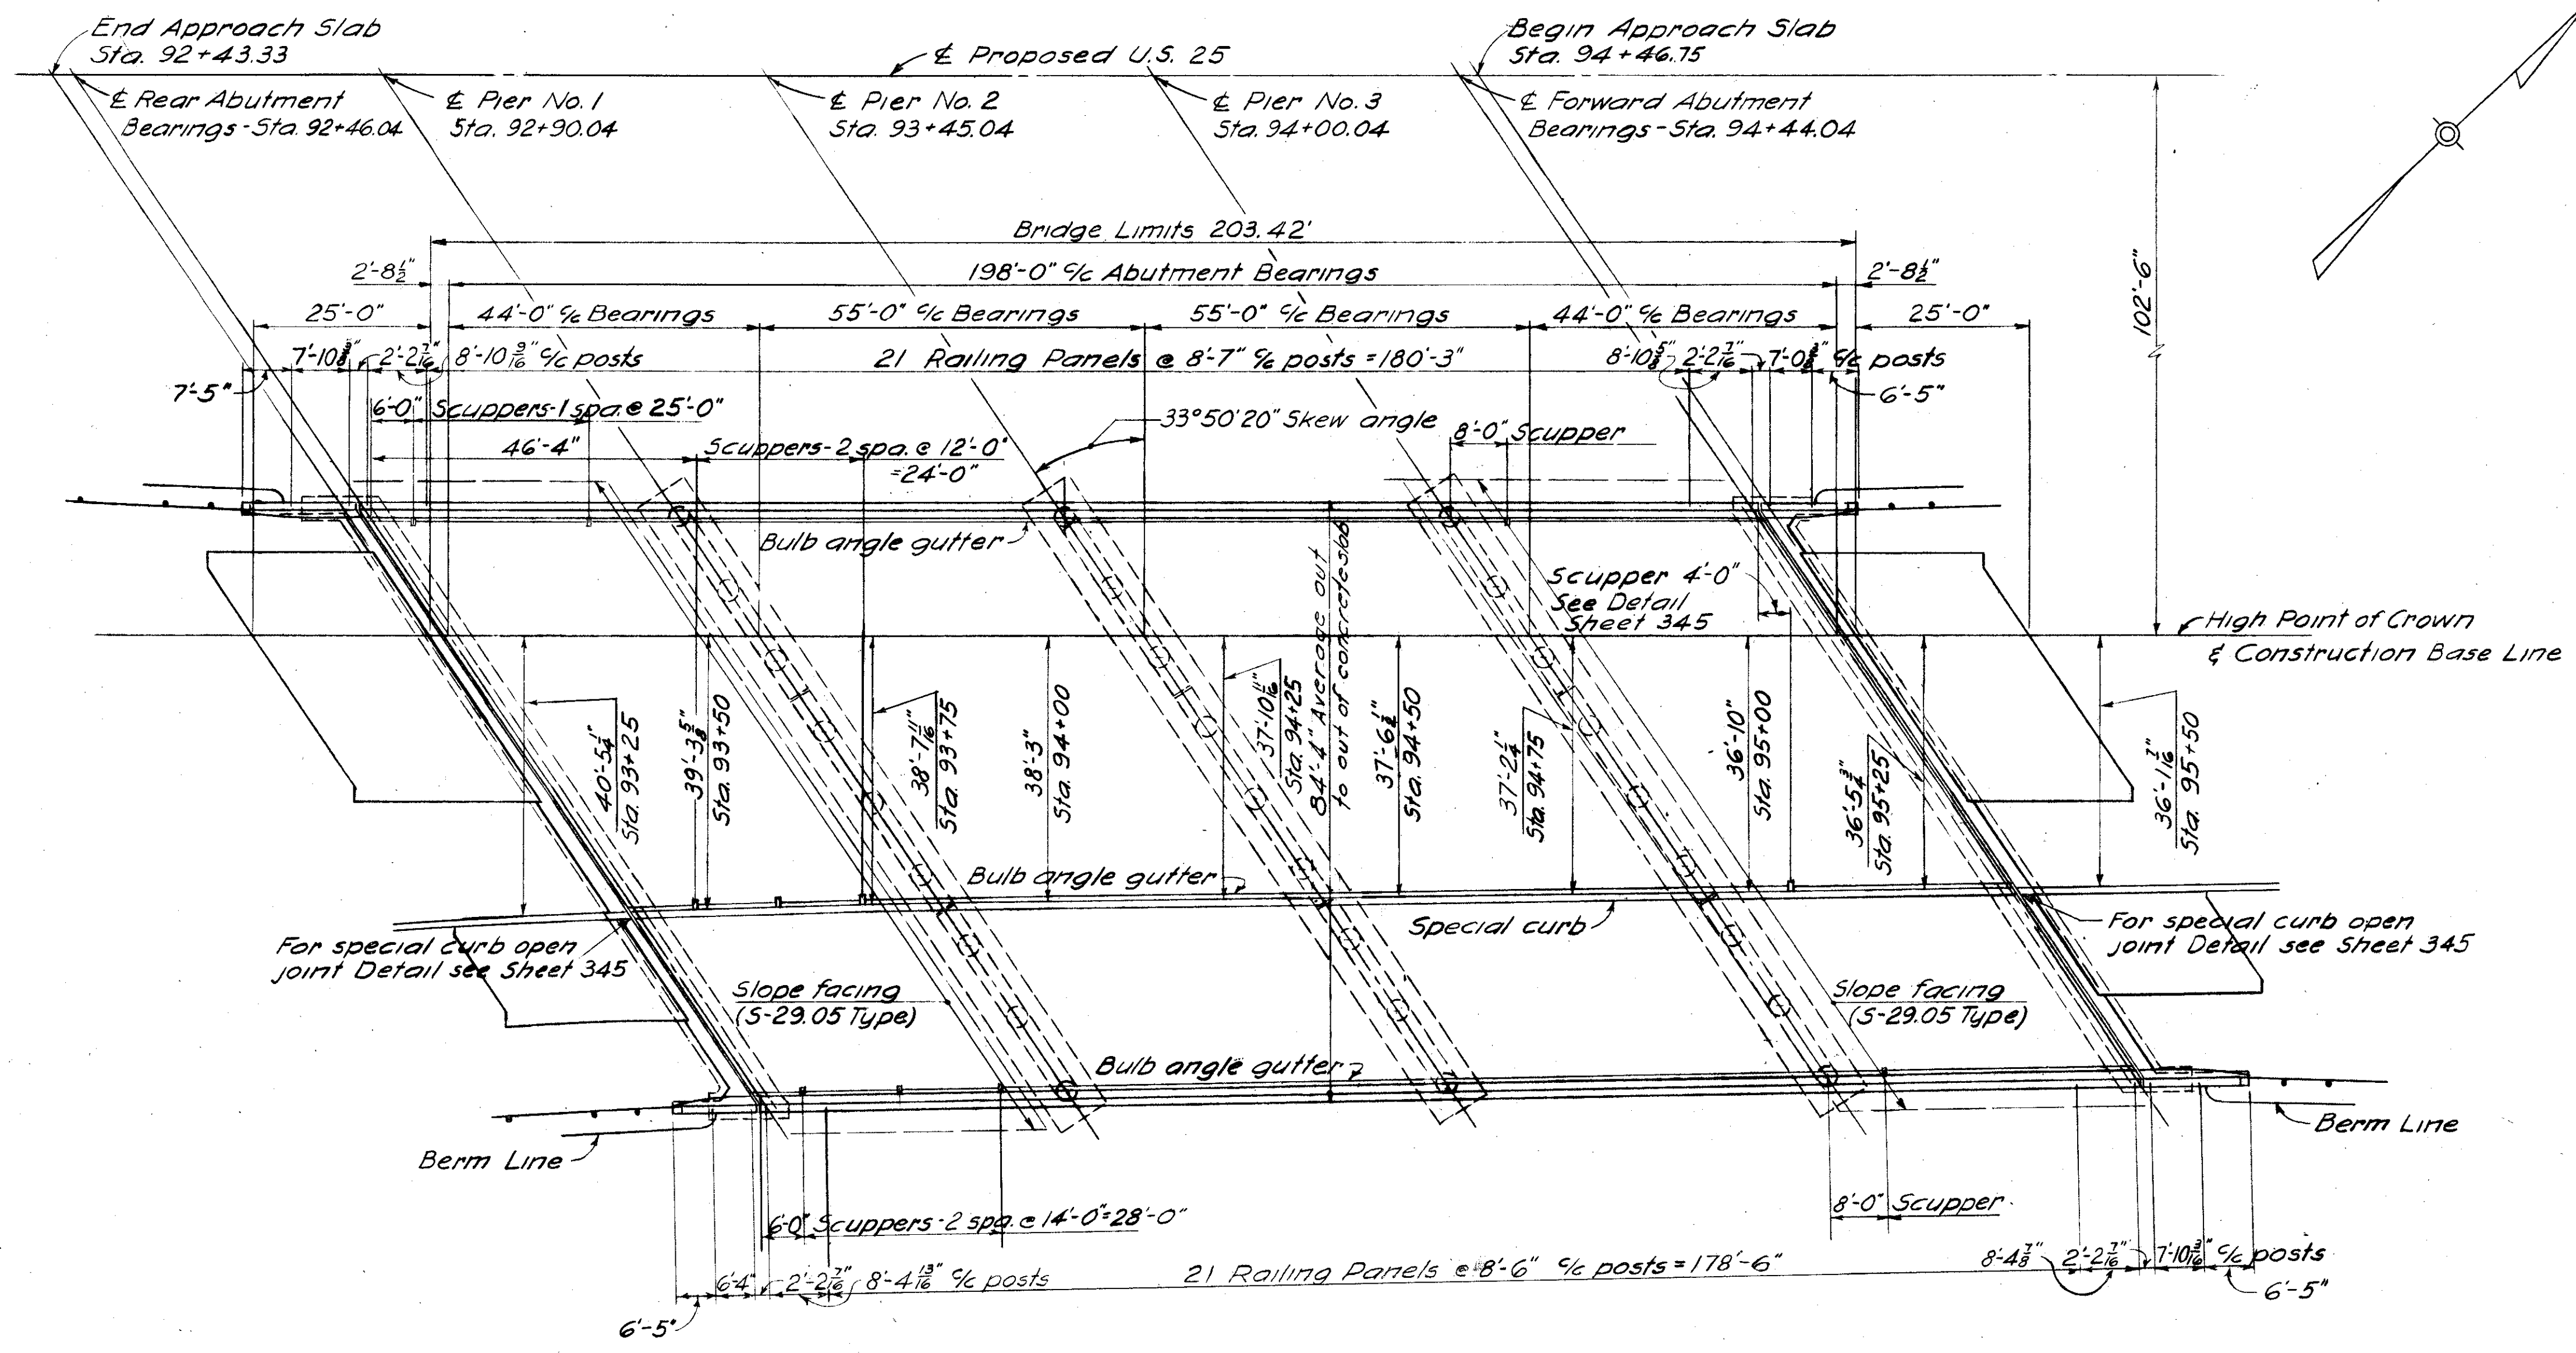 End Approach Slab
Sta. 92+43.33
℄ Proposed U.S. 25
Begin Approach Slab
Sta. 94+46.75
℄ Rear Abutment
Bearings-Sta. 92+46.04
℄ Pier No. 1
Sta. 92+90.04
℄ Pier No. 2
Sta. 93+45.04
℄ Pier No. 3
Sta. 94+00.04
℄ Forward Abutment
Bearings-Sta. 94+44.04
Bridge Limits 203.42'
2'-8½"
198'-0" c/c Abutment Bearings
2'-8½"
25'-0"
44'-0" c/c Bearings
55'-0" c/c Bearings
55'-0" c/c Bearings
44'-0" c/c Bearings
25'-0"
102'-6"
2'-2 7/16"
8'-10 9/16" c/c posts
21 Railing Panels @ 8'-7" c/c posts = 180'-3"
8'-10⅝"
2'-2 7/16"
c/c posts
7'-5"
6'-5"
6'-0" Scuppers-1 spa. @ 25'-0"
33°50'20" Skew angle
46'-4"
Scuppers-2 spa. @ 12'-0"
=24'-0"
8'-0" Scupper
Bulb angle gutter
84'-4" Average out
to out of concrete slab
Scupper 4'-0"
See Detail
Sheet 345
High Point of Crown
& Construction Base Line
40'-5¼"
Sta. 93+25
39'-3⅝"
Sta. 93+50
38'-7 11/16"
Sta. 93+75
38'-3"
Sta. 94+00
37'-10 11/16"
Sta. 94+25
37'-6½"
Sta. 94+50
37'-2¼"
Sta. 94+75
36'-10"
Sta. 95+00
36'-5¾"
Sta. 95+25
36'-1 7/16"
Sta. 95+50
Bulb angle gutter
Special curb
For special curb open
joint Detail see Sheet 345
For special curb open
joint Detail see Sheet 345
Slope facing
(S-29.05 Type)
Slope facing
(S-29.05 Type)
Bulb angle gutter
Berm Line
Berm Line
6'-0" Scuppers-2 spa. @ 14'-0"=28'-0"
8'-0" Scupper
6'-4"
2'-2 7/16"
8'-4 13/16" c/c posts
21 Railing Panels @ 8'-6" c/c posts = 178'-6"
8'-4⅞"
2'-2 7/16"
7'-10 3/16" c/c posts
6'-5"
6'-5"